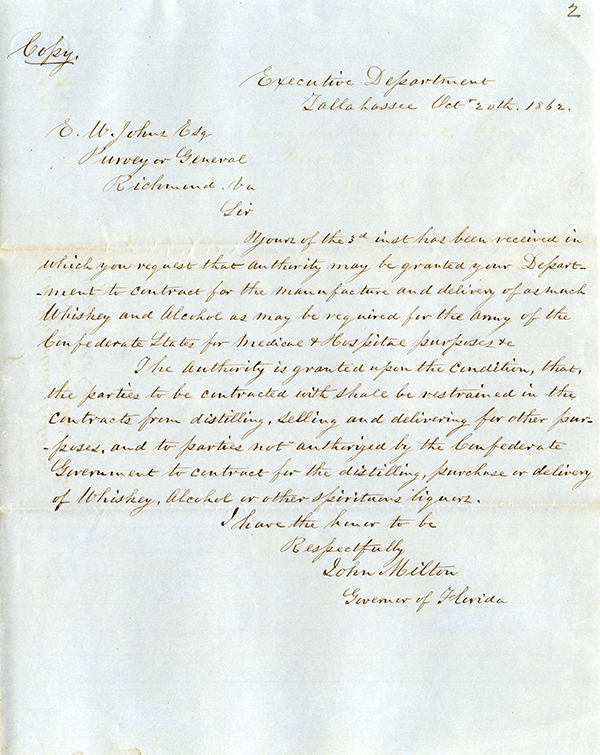 2
Copy.
Executive Department
Tallahassee Octr 20th. 1862.
E. W. Johns Esq
Purveyor General
Richmond. Va
Sir
Yours of the 3d inst has been received in
which you request that authority may be granted your Depart-
-ment to contract for the manufacture and delivery of as much
Whiskey and Alcohol as may be required for the Army of the
Confederate States for Medical & Hospital purposes &c
The Authority is granted upon the Condition, that,
the parties to be contracted with shall be restrained in the
contracts from distilling, selling and delivering for other pur-
-poses, and to parties not authorized by the Confederate
Government to contract for the distilling, purchase or delivery
of Whiskey, Alcohol or other spirituous liquors.
I have the honor to be
Respectfully
John Milton
Governor of Florida